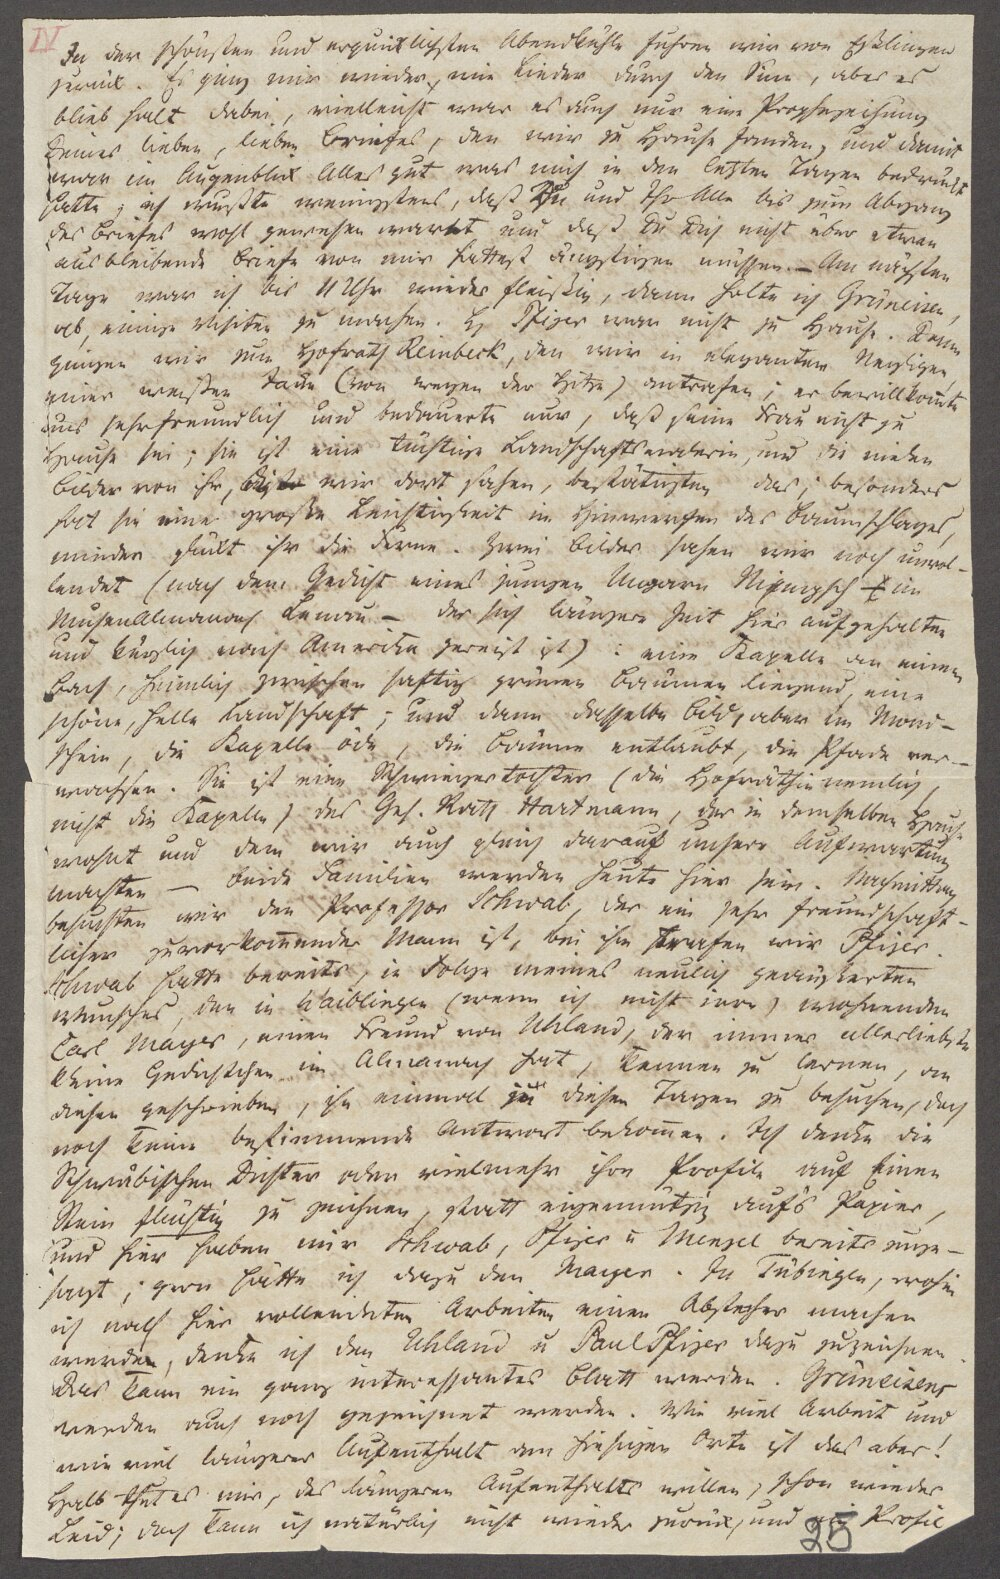 IV
In der schönsten und erquicklichsten Abendkühle fuhren wir von Eßlingen
zurück. Es ging mir wieder, wie Lieder durch den Sinn, aber es
blieb halt dabei, vielleicht war es auch nur eine Prophezeihung
Deines lieben, lieben Briefes, den wir zu Hause fanden, und damit
war im Augenblick Alles gut was mich in den letzten Tagen bedrückt
hatte; ich wußte wenigstens, daß Du und Ihr Alle bis zum Abgang
des Briefes wohl gewesen waret und daß Du Dich nicht über etwan
ausbleibende Briefe von mir hattest ängstigen müssen. – Am nächsten
Tage war ich bis 11 Uhr wieder fleißig, dann holte ich Grüneisen,
ab, einige Visiten zu machen. Pfizer war nicht zu Hause. Dann
gingen wir zum Hofrath Reinbeck, den wir in elegantem Negligee,
einer weißen Jacke (von wegen der Hitze) antrafen; er bewillkomte
uns sehr freundlich und bedauerte nur, daß seine Frau nicht zu
Hause sei; sie ist eine tüchtige Landschaftsmalerin, und die vielen
Bilder von ihr, die wir dort sahen, bestätigten das; besonders
hat sie eine große Leichtigkeit im Hinwerfen des Baumschlages,
minder glückt ihr die Ferne. Zwei Bilder sahen wir noch unvol-
lendet (nach dem Gedicht eines jungen Ungarn Nimpsch – im
Musenalmanach Lenau – der sich längere Zeit hier aufgehalten
und kürzlich nach Amerika gereist ist): eine Kapelle an einem
Bach, heimlich zwischen saftig grünen Bäumen liegend, eine
schöne, helle Landschaft; und dann dasselbe Bild, aber im Mond-
schein, die Kapelle öde, die Bäume entlaubt, die Pfade ver-
wachsen. Sie ist eine Schwiegertochter (die Hofräthin nemlich,
nicht die Kapelle) des Geh. Rath Hartmann, der in demselben Hause
wohnt und dem wir auch gleich darauf unsere Aufwartung
machten – beide Familien werden heute hier sein. Nachmittag
besuchten wir den Professor Schwab, der ein sehr freundschaft-
licher zuvorkommender Mann ist, bei ihm trafen wir Pfizer.
Schwab hatte bereits, in Folge meines neulich geäußerten
Wunsches, den in Waiblingen (wenn ich nicht irre) wohnenden
Carl Mayer, einen Freund von Uhland, der immer allerliebste
kleine Gedichtchen im Almanach hat, kennen zu lernen, an
diesen geschrieben, ihn einmal in diesen Tagen zu besuchen, doch
noch keine bestimmende Antwort bekommen. Ich denke die
Schwäbischen Dichter oder vielmehr ihre Profile auf Einen
Stein flüchtig zu zeichnen, statt eigennützig aufs Papier,
und hier haben mir Schwab, Pfizer u Menzel bereits zuge-
sagt; gern hätte ich dazu den Mayer. In Tübingen, wohin
ich nach hier vollendeten Arbeiten einen Abstecher machen
werde, denke ich den Uhland u Paul Pfizer dazu zu zeichnen.
Das kann ein ganz interessantes Blatt werden. Grüneisens
werden auch noch gezeichnet werden. Wie viel Arbeit und
wie viel längerer Aufenthalt am hiesigen Orte ist das aber!
Halb thut es mir, des längeren Aufenthalts willen, schon wieder
Leid; doch kann ich natürlich nicht wieder zurück, und ein Profil
25